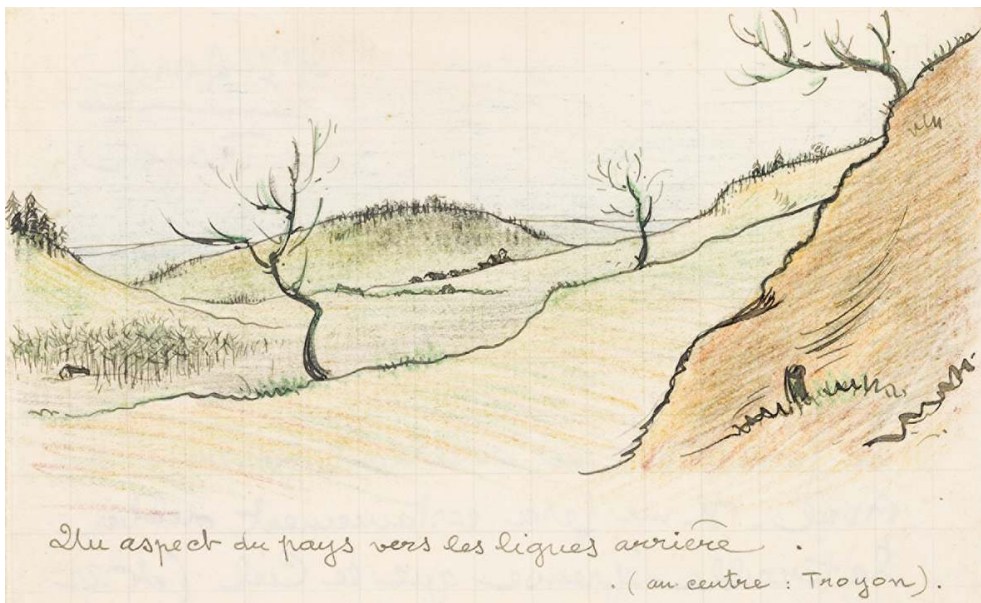 Un aspect du pays vers les lignes arrière.
(au centre : Troyon).